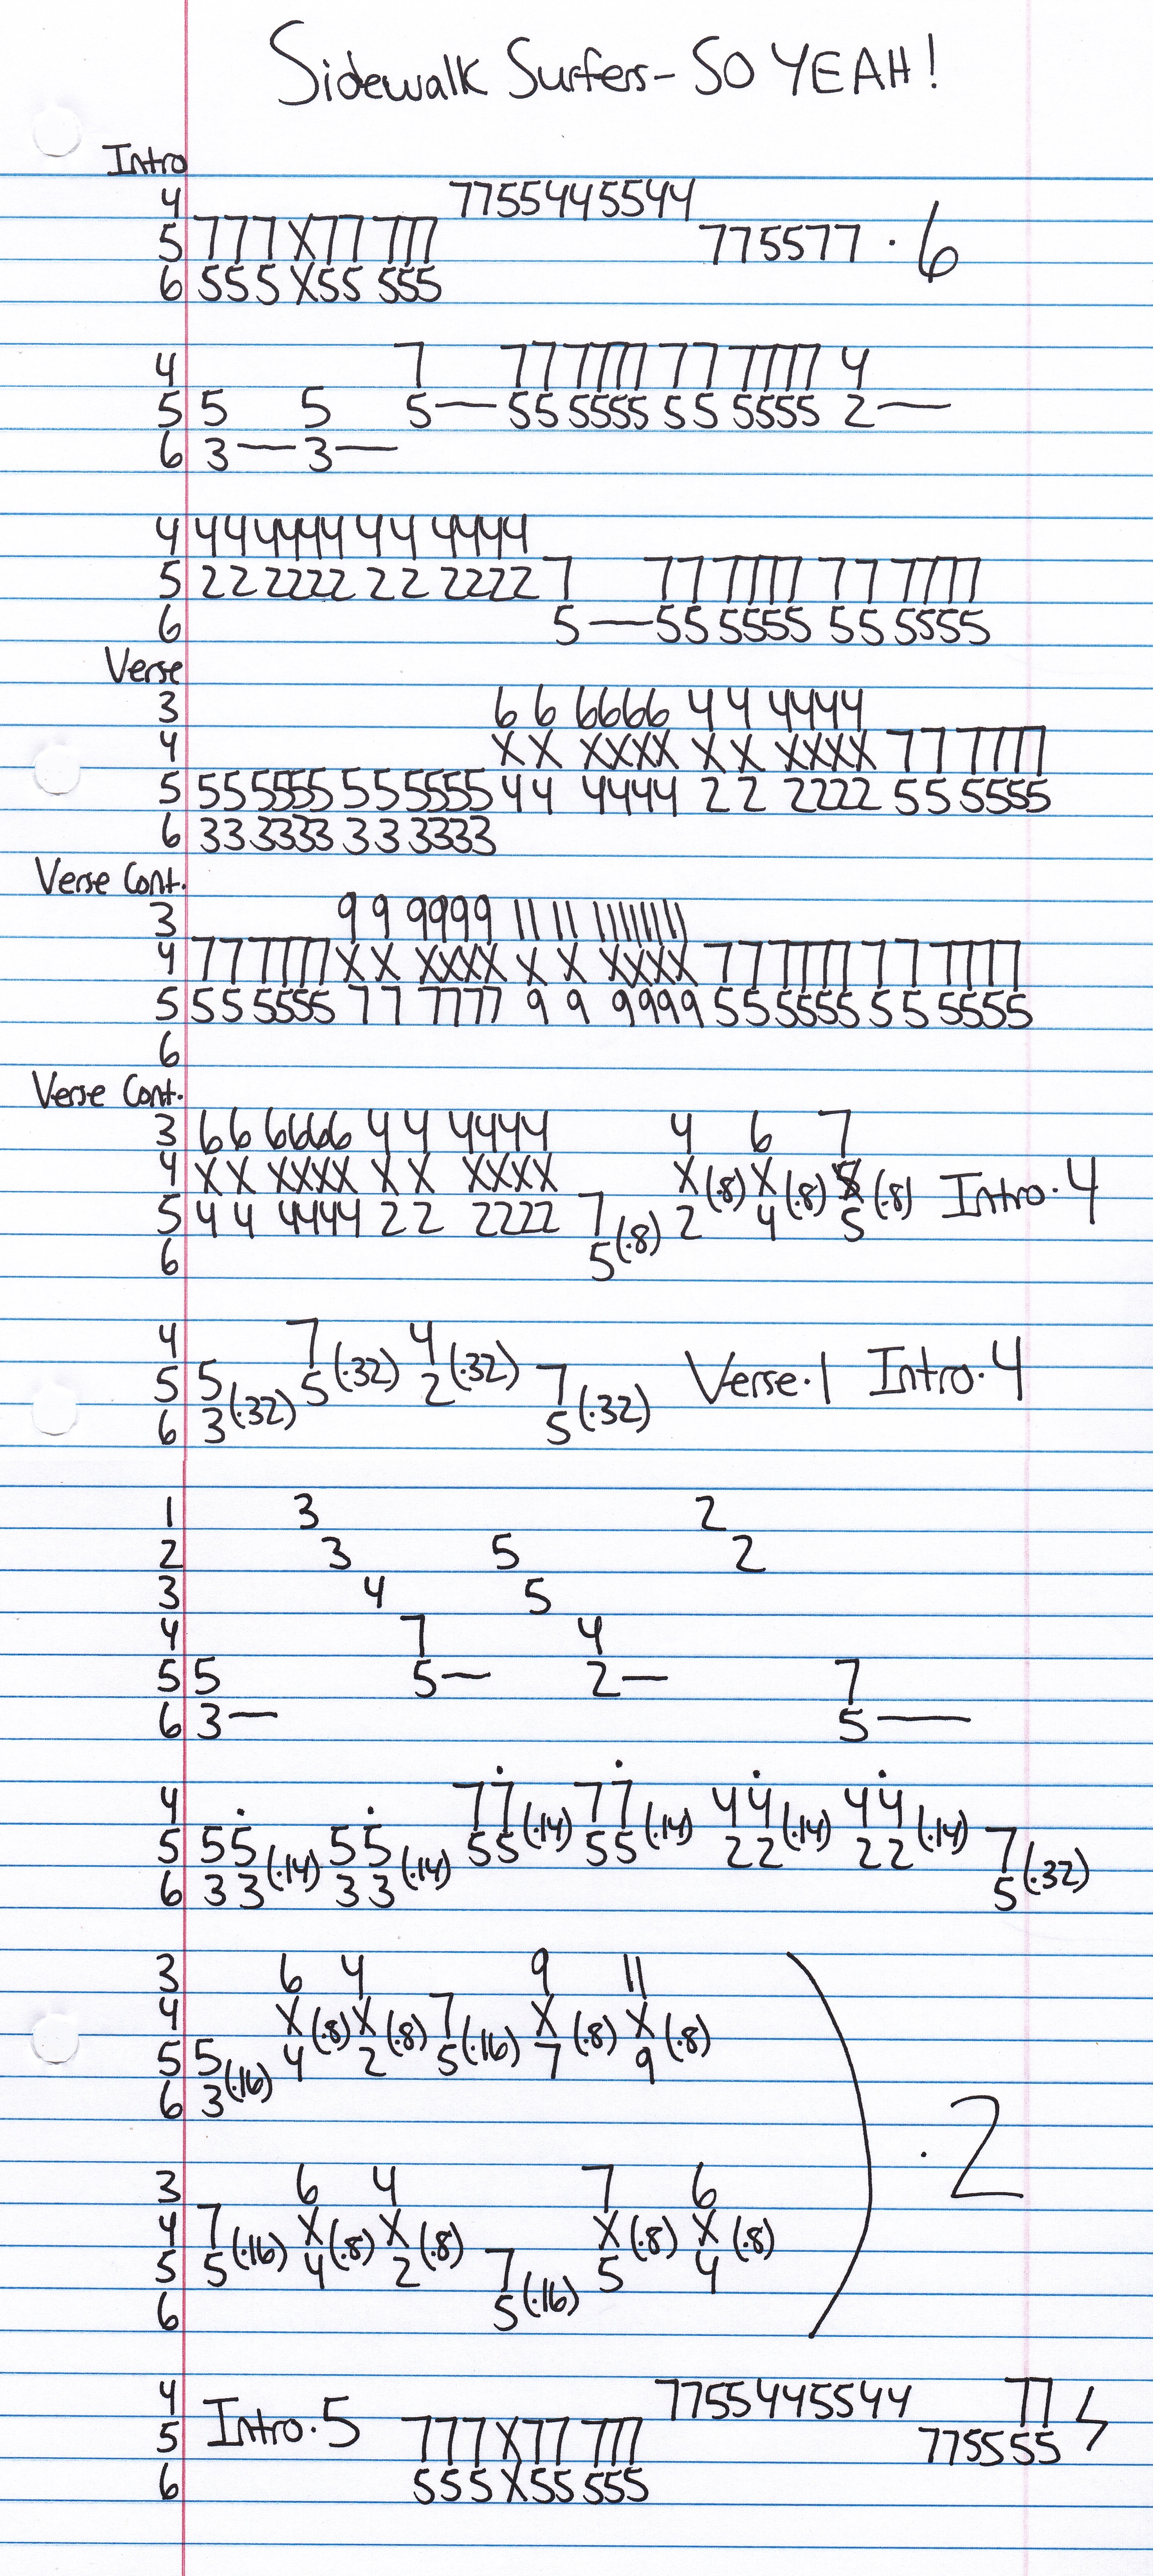 Sidewalk Surfers - SO YEAH!
Intro
4 7755445544
5 777X77 777 775577 · 6
6 555X55 555
4 7 77 7777 77 7777 4
5 5 5 5— 55 5555 55 5555 2—
6 3— 3—
4 44 4444 44 4444
5 22 2222 22 2222 7 77 7777 77 7777
6 5— 55 5555 55 5555
Verse
3 66 6666 44 4444
4 XX XXXX XX XXXX 77 7777
5 55 5555 55 5555 44 4444 22 2222 55 5555
6 33 3333 33 3333
Verse Cont.
3 99 9999 11 11 11111111
4 77 7777 XX XXXX XX XXXX 77 7777 77 7777
5 55 5555 77 7777 99 9999 55 5555 55 5555
6
Verse Cont.
3 66 6666 44 4444 4 6 7
4 XX XXXX XX XXXX X(·8) X(·8) X(·8) Intro·4
5 44 4444 22 2222 7 2 4 5
6 5(·8)
4 7 4
5 5 5(·32) 2(·32) 7 Verse·1 Intro·4
6 3(·32) 5(·32)
1 3 2
2 3 5 2
3 4 5
4 7 4
5 5 5— 2— 7
6 3— 5—
4 77̇ 77̇ 44̇ 44̇
5 55̇ 55̇ 55(·14) 55(·14) 22(·14) 22(·14) 7
6 33(·14) 33(·14) 5(·32)
3 6 4 9 11
4 X(·8) X(·8) 7 X(·8) X(·8)
5 5 4 2 5(·16) 7 9
6 3(·16)
) · 2
3 6 4 7 6
4 7 X(·8) X(·8) X(·8) X(·8)
5 5(·16) 4 2 7 5 4
6 5(·16)
4 7755445544 77
5 Intro·5 777X77 777 775555
6 555X55 555